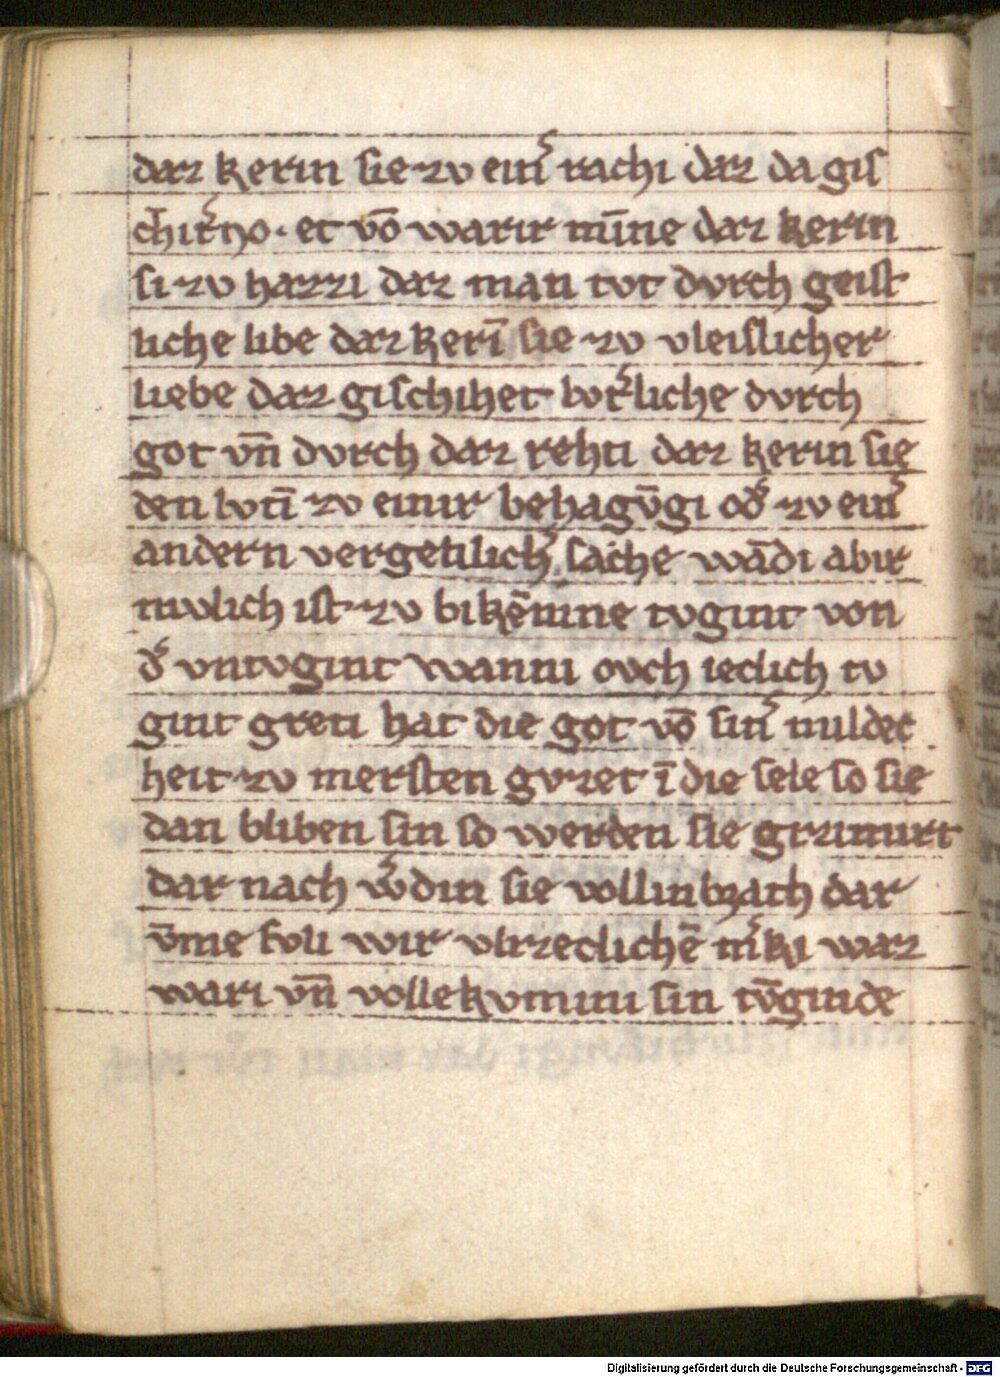 daz kerin sie zv ein͛ rachi daz da giſ
chir͛ no. et vō warir mīne daz kerin
si zv hazzi daz man tvt dvrch geist
liche libe daz kerī sie zv vleislicher
liebe daz gischihet bor͛liche dvrch
got vn̄ dvrch daz rehti daz kerin sie
den lvtī zv einir behagv̄gi od͛ zv ein͛
andern vergetilich͛ sache wādi abir
mvlich ist zv bikēnine tvgint von
d͛ vntvgint wanni ovch ieclich tv
gint greti hat die got vō sin͛ mildec
heit zv mersten gvzet ī die sele so sie
dan bliben sin so werden sie gezimirt
dar nach w͛din sie vollinbrath dar
v̄me svli wir vlizeclichē m͛ki waz
wari vn̄ vollekvmini sin tv̄ginde
Digitalisierung gefördert durch die Deutsche Forschungsgemeinschaft - DFG